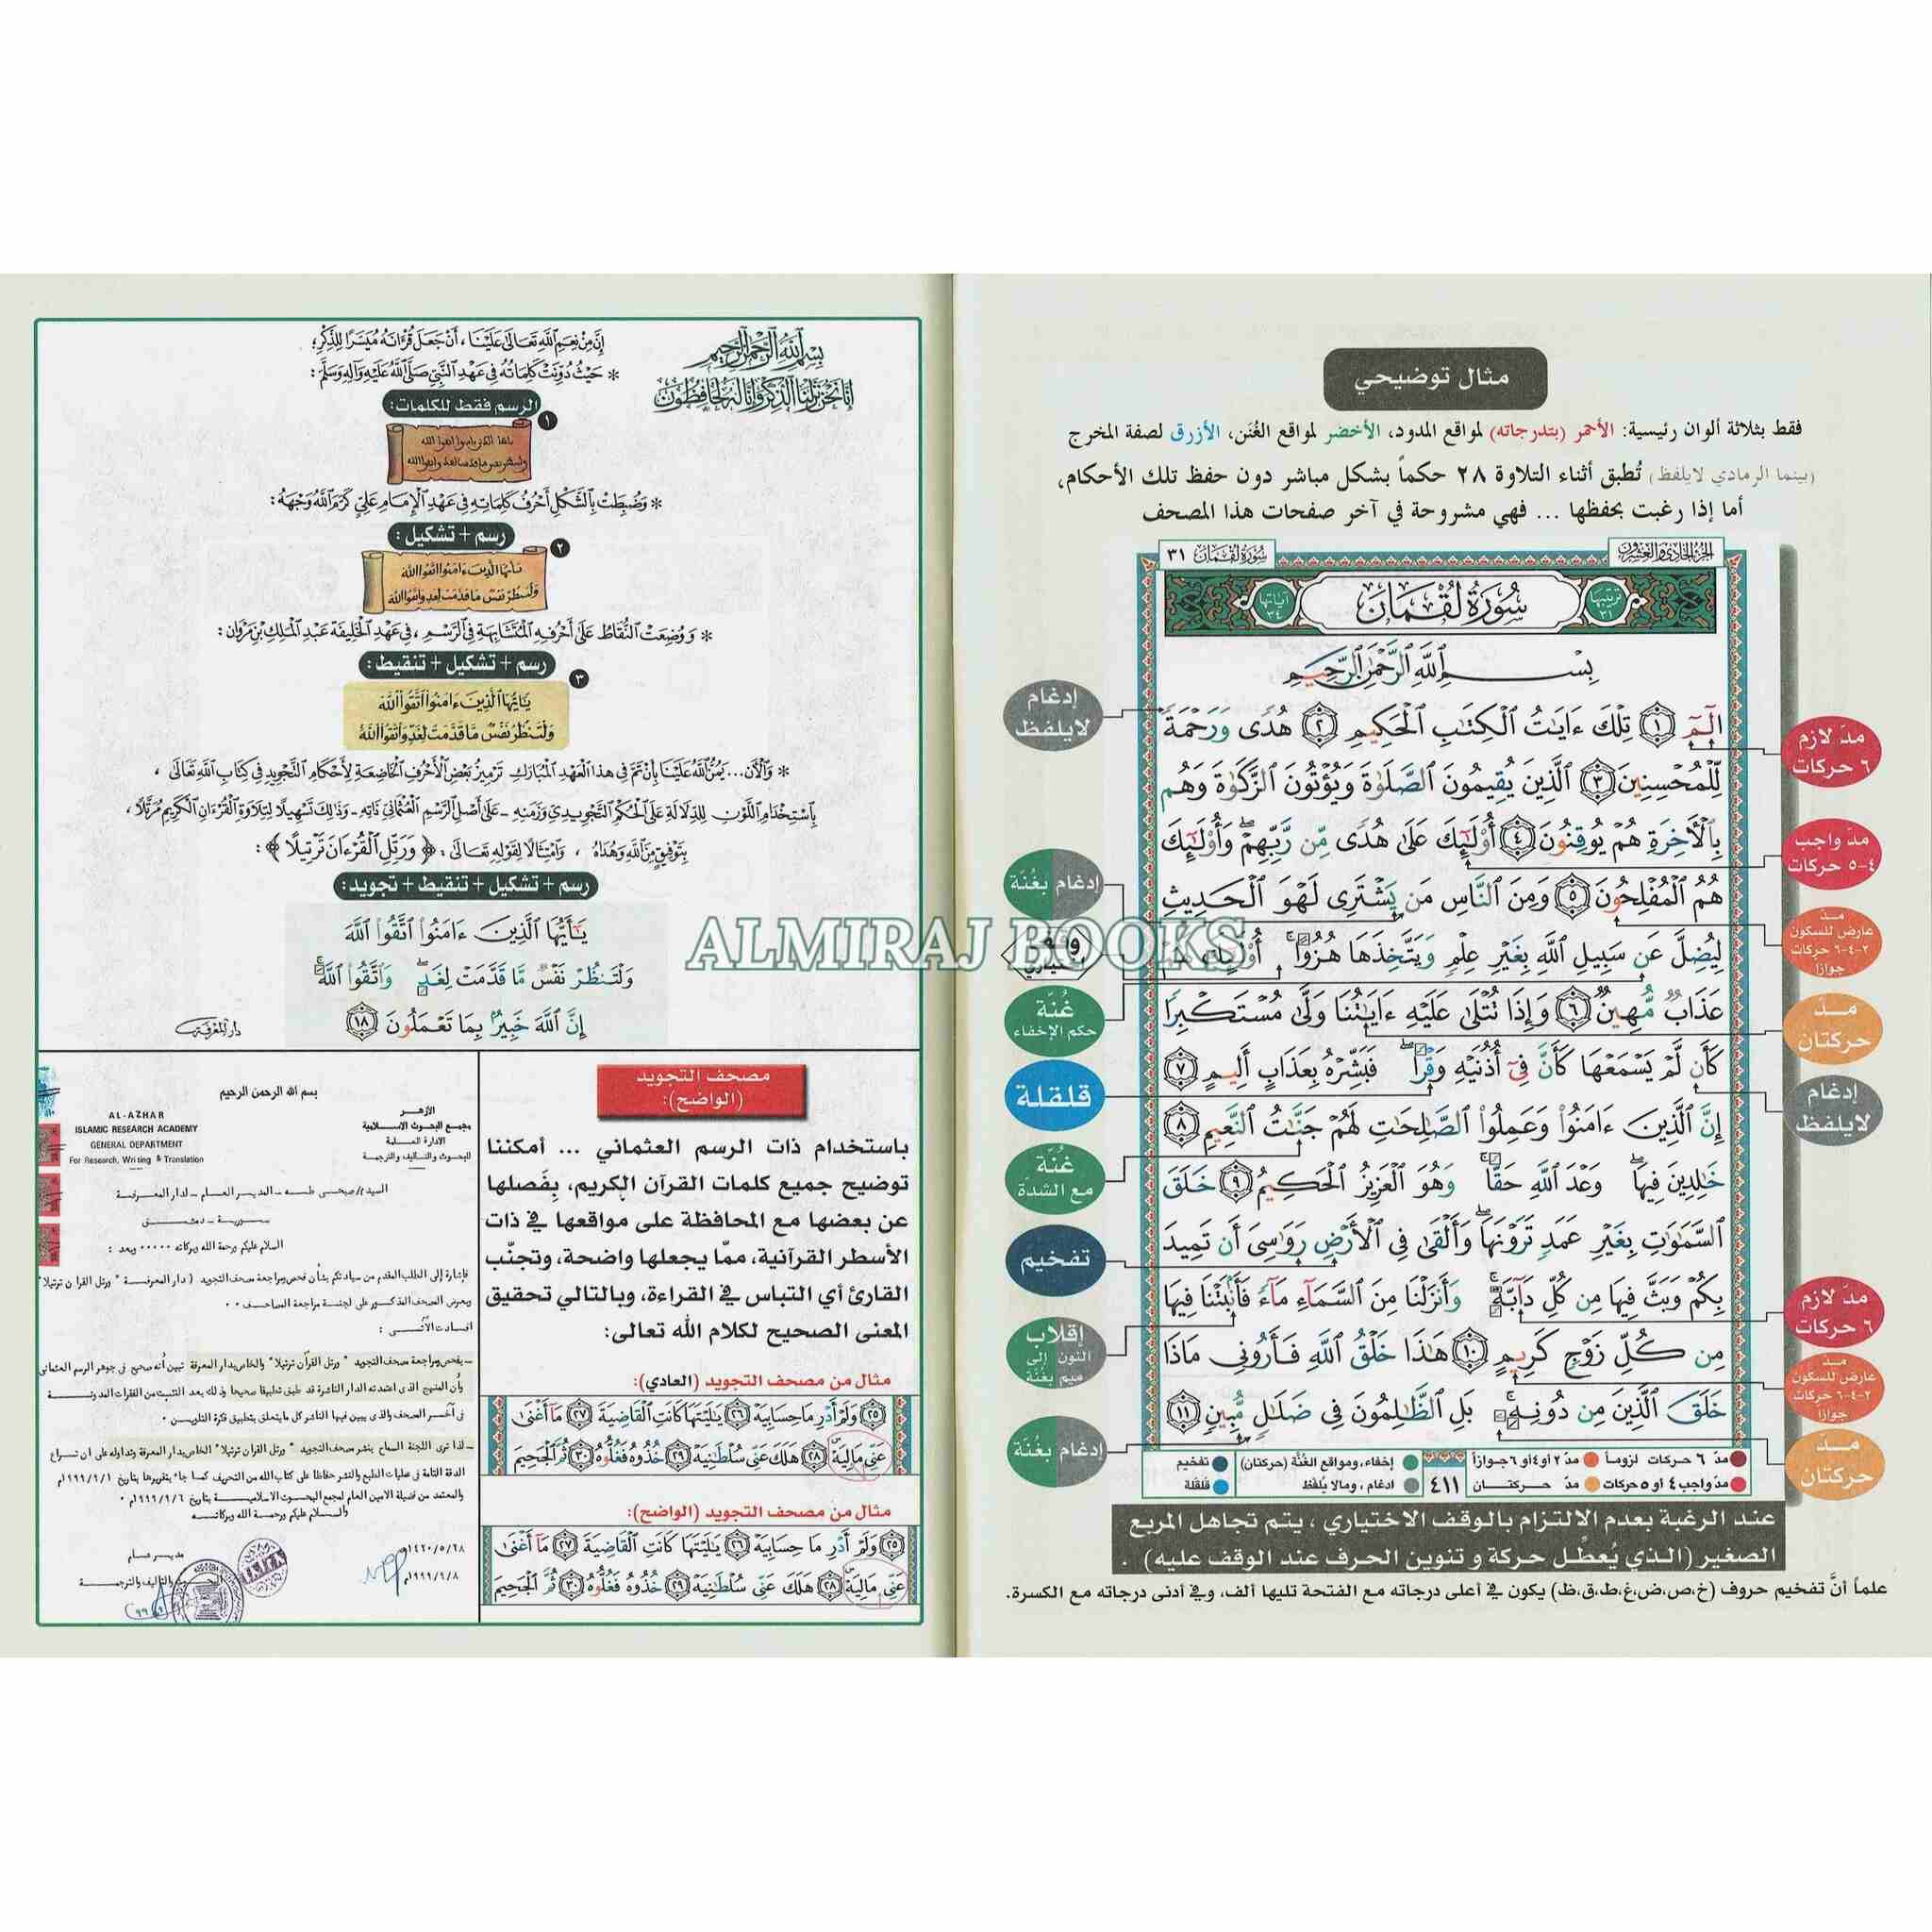 مثال توضيحي
فقط بثلاثة ألوان رئيسية: الأحمر (بتدرجاته) لمواقع المدود، الأخضر لمواقع الغُنَن، الأزرق لصفة المخرج
(بينما الرمادي لايلفظ) تُطبق أثناء التلاوة ٢٨ حكماً بشكل مباشر دون حفظ تلك الأحكام،
أما إذا رغبت بحفظها ... فهي مشروحة في آخر صفحات هذا المصحف
الجزء الحادي والعشرون
سورة لقمان ٣١
ترتيبها ٣١
سُورَةُ لُقْمَان
آياتها ٣٤
بِسْمِ اللَّهِ الرَّحْمَٰنِ الرَّحِيمِ
الٓمٓ ١ تِلْكَ ءَايَٰتُ ٱلْكِتَٰبِ ٱلْحَكِيمِ ٢ هُدًى وَرَحْمَةً
لِّلْمُحْسِنِينَ ٣ ٱلَّذِينَ يُقِيمُونَ ٱلصَّلَوٰةَ وَيُؤْتُونَ ٱلزَّكَوٰةَ وَهُم
بِٱلْأَخِرَةِ هُمْ يُوقِنُونَ ٤ أُوْلَٰٓئِكَ عَلَىٰ هُدًى مِّن رَّبِّهِمْ ۖ وَأُوْلَٰٓئِكَ
هُمُ ٱلْمُفْلِحُونَ ٥ وَمِنَ ٱلنَّاسِ مَن يَشْتَرِى لَهْوَ ٱلْحَدِيثِ
لِيُضِلَّ عَن سَبِيلِ ٱللَّهِ بِغَيْرِ عِلْمٍ وَيَتَّخِذَهَا هُزُوًا ۚ أُوْلَٰٓئِكَ لَهُمْ
عَذَابٌ مُّهِينٌ ٦ وَإِذَا تُتْلَىٰ عَلَيْهِ ءَايَٰتُنَا وَلَّىٰ مُسْتَكْبِرًا
كَأَن لَّمْ يَسْمَعْهَا كَأَنَّ فِىٓ أُذُنَيْهِ وَقْرًا ۖ فَبَشِّرْهُ بِعَذَابٍ أَلِيمٍ ٧
إِنَّ ٱلَّذِينَ ءَامَنُوا۟ وَعَمِلُوا۟ ٱلصَّٰلِحَٰتِ لَهُمْ جَنَّٰتُ ٱلنَّعِيمِ ٨
خَٰلِدِينَ فِيهَا ۖ وَعْدَ ٱللَّهِ حَقًّا ۚ وَهُوَ ٱلْعَزِيزُ ٱلْحَكِيمُ ٩ خَلَقَ
ٱلسَّمَٰوَٰتِ بِغَيْرِ عَمَدٍ تَرَوْنَهَا ۖ وَأَلْقَىٰ فِى ٱلْأَرْضِ رَوَٰسِىَ أَن تَمِيدَ
بِكُمْ وَبَثَّ فِيهَا مِن كُلِّ دَآبَّةٍ ۚ وَأَنزَلْنَا مِنَ ٱلسَّمَآءِ مَآءً فَأَنۢبَتْنَا فِيهَا
مِن كُلِّ زَوْجٍ كَرِيمٍ ١٠ هَٰذَا خَلْقُ ٱللَّهِ فَأَرُونِى مَاذَا
خَلَقَ ٱلَّذِينَ مِن دُونِهِۦ ۚ بَلِ ٱلظَّٰلِمُونَ فِى ضَلَٰلٍ مُّبِينٍ ١١
مدّ لازم
٦ حركات
مدّ واجب
٤-٥ حركات
مدّ
عارض للسكون
٢-٤-٦ حركات
جوازاً
مدّ
حركتان
إدغام
لايلفظ
مدّ لازم
٦ حركات
مدّ
عارض للسكون
٢-٤-٦ حركات
جوازاً
مدّ
حركتان
إدغام
لايلفظ
إدغام بغُنّة
غُنّة
حكم الإخفاء
قلقلة
غُنّة
مع الشدة
تفخيم
إقلاب
النون إلى
ميم بغُنّة
إدغام بغُنّة
مدّ ٦ حركات لزوماً مدّ ٢ أو٤ أو ٦ جوازاً
مدّ واجب ٤ أو ٥ حركات مدّ حركتان
٤١١
إخفاء، ومواقع الغُنَّة (حركتان) تفخيم
ادغام ، ومالا يُلفظ قلقلة
عند الرغبة بعدم الالتزام بالوقف الاختياري ، يتم تجاهل المربع
الصغير (الذي يُعطِّل حركة و تنوين الحرف عند الوقف عليه) .
علماً أنَّ تفخيم حروف (خ،ص،ض،غ،ط،ق،ظ) يكون في أعلى درجاته مع الفتحة تليها ألف، وفي أدنى درجاته مع الكسرة.
ALMIRAJ BOOKS
بسم الله الرحمن الرحيم
إنا نحن نزلنا الذكر وإنا له لحافظون
إِنَّ مِنْ نِعَمِ اللَّهِ تَعَالَىٰ عَلَيْنَا، أَنْ جَعَلَ قُرْءَانَهُ مُيَسَّرًا لِلذِّكْرِ؛
* حَيْثُ دُوِّنَتْ كَلِمَاتُهُ فِي عَهْدِ النَّبِيِّ صَلَّى اللَّهُ عَلَيْهِ وَآلِهِ وَسَلَّمَ:
الرسم فقط للكلمات:
١
* وَضُبِطَتْ بِالشَّكْلِ أَحْرُفُ كَلِمَاتِهِ فِي عَهْدِ الْإِمَامِ عَلِيٍّ كَرَّمَ اللَّهُ وَجْهَهُ:
رسم + تشكيل:
٢
* وَوُضِعَتْ النُّقَاطُ عَلَىٰ أَحْرُفِهِ الْمُتَشَابِهَةِ فِي الرَّسْمِ، فِي عَهْدِ الْخَلِيفَةِ عَبْدِ الْمَلِكِ بْنِ مَرْوَان:
رسم + تشكيل + تنقيط:
٣
يَٰأَيُّهَا ٱلَّذِينَ ءَامَنُوا ٱتَّقُوا ٱللَّهَ
وَلْتَنظُرْ نَفْسٌ مَّا قَدَّمَتْ لِغَدٍ وَٱتَّقُوا ٱللَّهَ
* وَالْآنَ... يَمُنُّ اللَّهُ عَلَيْنَا بِأَنْ تَمَّ فِي هذَا الْعَهْدِ الْمُبَارَكِ تَرْمِيزُ بَعْضِ الْأَحْرُفِ الْخَاضِعَةِ لِأَحْكَامِ التَّجْوِيدِ فِي كِتَابِ اللَّهِ تَعَالَىٰ،
بِاسْتِخْدَامِ اللَّوْنِ لِلدِّلَالَةِ عَلَى الْحُكْمِ التَّجْوِيدِيِّ وَزَمَنِهِ - عَلَىٰ أَصْلِ الرَّسْمِ الْعُثْمَانِيِّ ذَاتِهِ - وَذَٰلِكَ تَسْهِيلًا لِتِلَاوَةِ الْقُرْءَانِ الْكَرِيمِ مُرَتَّلًا،
بِتَوْفِيقٍ مِنَ اللَّهِ وَهُدَاهُ، وَامْتِثَالًا لِقَوْلِهِ تَعَالَىٰ: ﴿ وَرَتِّلِ ٱلْقُرْءَانَ تَرْتِيلًا ﴾:
رسم + تشكيل + تنقيط + تجويد:
يَٰٓأَيُّهَا ٱلَّذِينَ ءَامَنُوا۟ ٱتَّقُوا۟ ٱللَّهَ
وَلْتَنظُرْ نَفْسٌ مَّا قَدَّمَتْ لِغَدٍ ۖ وَٱتَّقُوا۟ ٱللَّهَ ۚ
إِنَّ ٱللَّهَ خَبِيرٌۢ بِمَا تَعْمَلُونَ ١٨
دار المعرفة
مصحف التجويد
(الواضح):
باستخدام ذات الرسم العثماني ... أمكننا
توضيح جميع كلمات القرآن الكريم، بِفَصلها
عن بعضها مع المحافظة على مواقعها في ذات
الأسطر القرآنية، ممّا يجعلها واضحة، وتجنّب
القارئ أي التباس في القراءة، وبالتالي تحقيق
المعنى الصحيح لكلام الله تعالى:
مثال من مصحف التجويد (العادي):
٢٥ وَلَمْ أَدْرِ مَا حِسَابِيَهْ ٢٦ يَٰلَيْتَهَا كَانَتِ ٱلْقَاضِيَةَ ٢٧ مَآ أَغْنَىٰ
عَنِّى مَالِيَهْ ٢٨ هَلَكَ عَنِّى سُلْطَٰنِيَهْ ٢٩ خُذُوهُ فَغُلُّوهُ ٣٠ ثُمَّ ٱلْجَحِيمَ
مثال من مصحف التجويد (الواضح):
٢٥ وَلَمْ أَدْرِ مَا حِسَابِيَهْ ٢٦ يَٰلَيْتَهَا كَانَتِ ٱلْقَاضِيَةَ ٢٧ مَآ أَغْنَىٰ
عَنِّى مَالِيَهْ ٢٨ هَلَكَ عَنِّى سُلْطَٰنِيَهْ ٢٩ خُذُوهُ فَغُلُّوهُ ٣٠ ثُمَّ ٱلْجَحِيمَ
بسم الله الرحمن الرحيم
AL-AZHAR
ISLAMIC RESEARCH ACADEMY
GENERAL DEPARTMENT
For Research, Writing & Translation
الأزهر
مجمع البحوث الاسلامية
الادارة العامة
للبحوث والتأليف والترجمة
السيد/ صبحى طه - المدير العام - لدار المعرفة
سورية - دمشق
السلام عليكم ورحمة الله وبركاته ..... وبعد :
فإشارة إلى الطلب المقدم من سيادتكم بشأن فحص ومراجعة مصحف التجويد ( دار المعرفة " ورتل القرآن ترتيلا"
وبعرض المصحف المذكور على لجنة مراجعة المصاحف ..
افادت الآتى :
- بفحص ومراجعة مصحف التجويد " ورتل القرآن ترتيلا" والخاص بدار المعرفة تبين أنه صحيح فى جوهر الرسم العثمانى
وأن المنهج الذى اعتمدته الدار الناشرة قد طبق تطبيقا صحيحا وذلك بعد التثبت من الفقرات المدونة
فى آخر المصحف والذى يبين فيها الناشر كل مايتعلق بتطبيق فكرة التلوين .
- لذا ترى اللجنة السماح بنشر مصحف التجويد " ورتل القرآن ترتيلا" الخاص بدار المعرفة وتداوله على أن تراعى
الدقة التامة فى عمليات الطبع والنشر حفاظا على كتاب الله من التحريف كما جاء بتقريرها بتاريخ ١٩٩٩/٩/١م
والمعتمد من فضيلة الامين العام لمجمع البحوث الاسلامية بتاريخ ١٩٩٩/٩/٦م .
والسلام عليكم ورحمة الله وبركاته
مدير عام